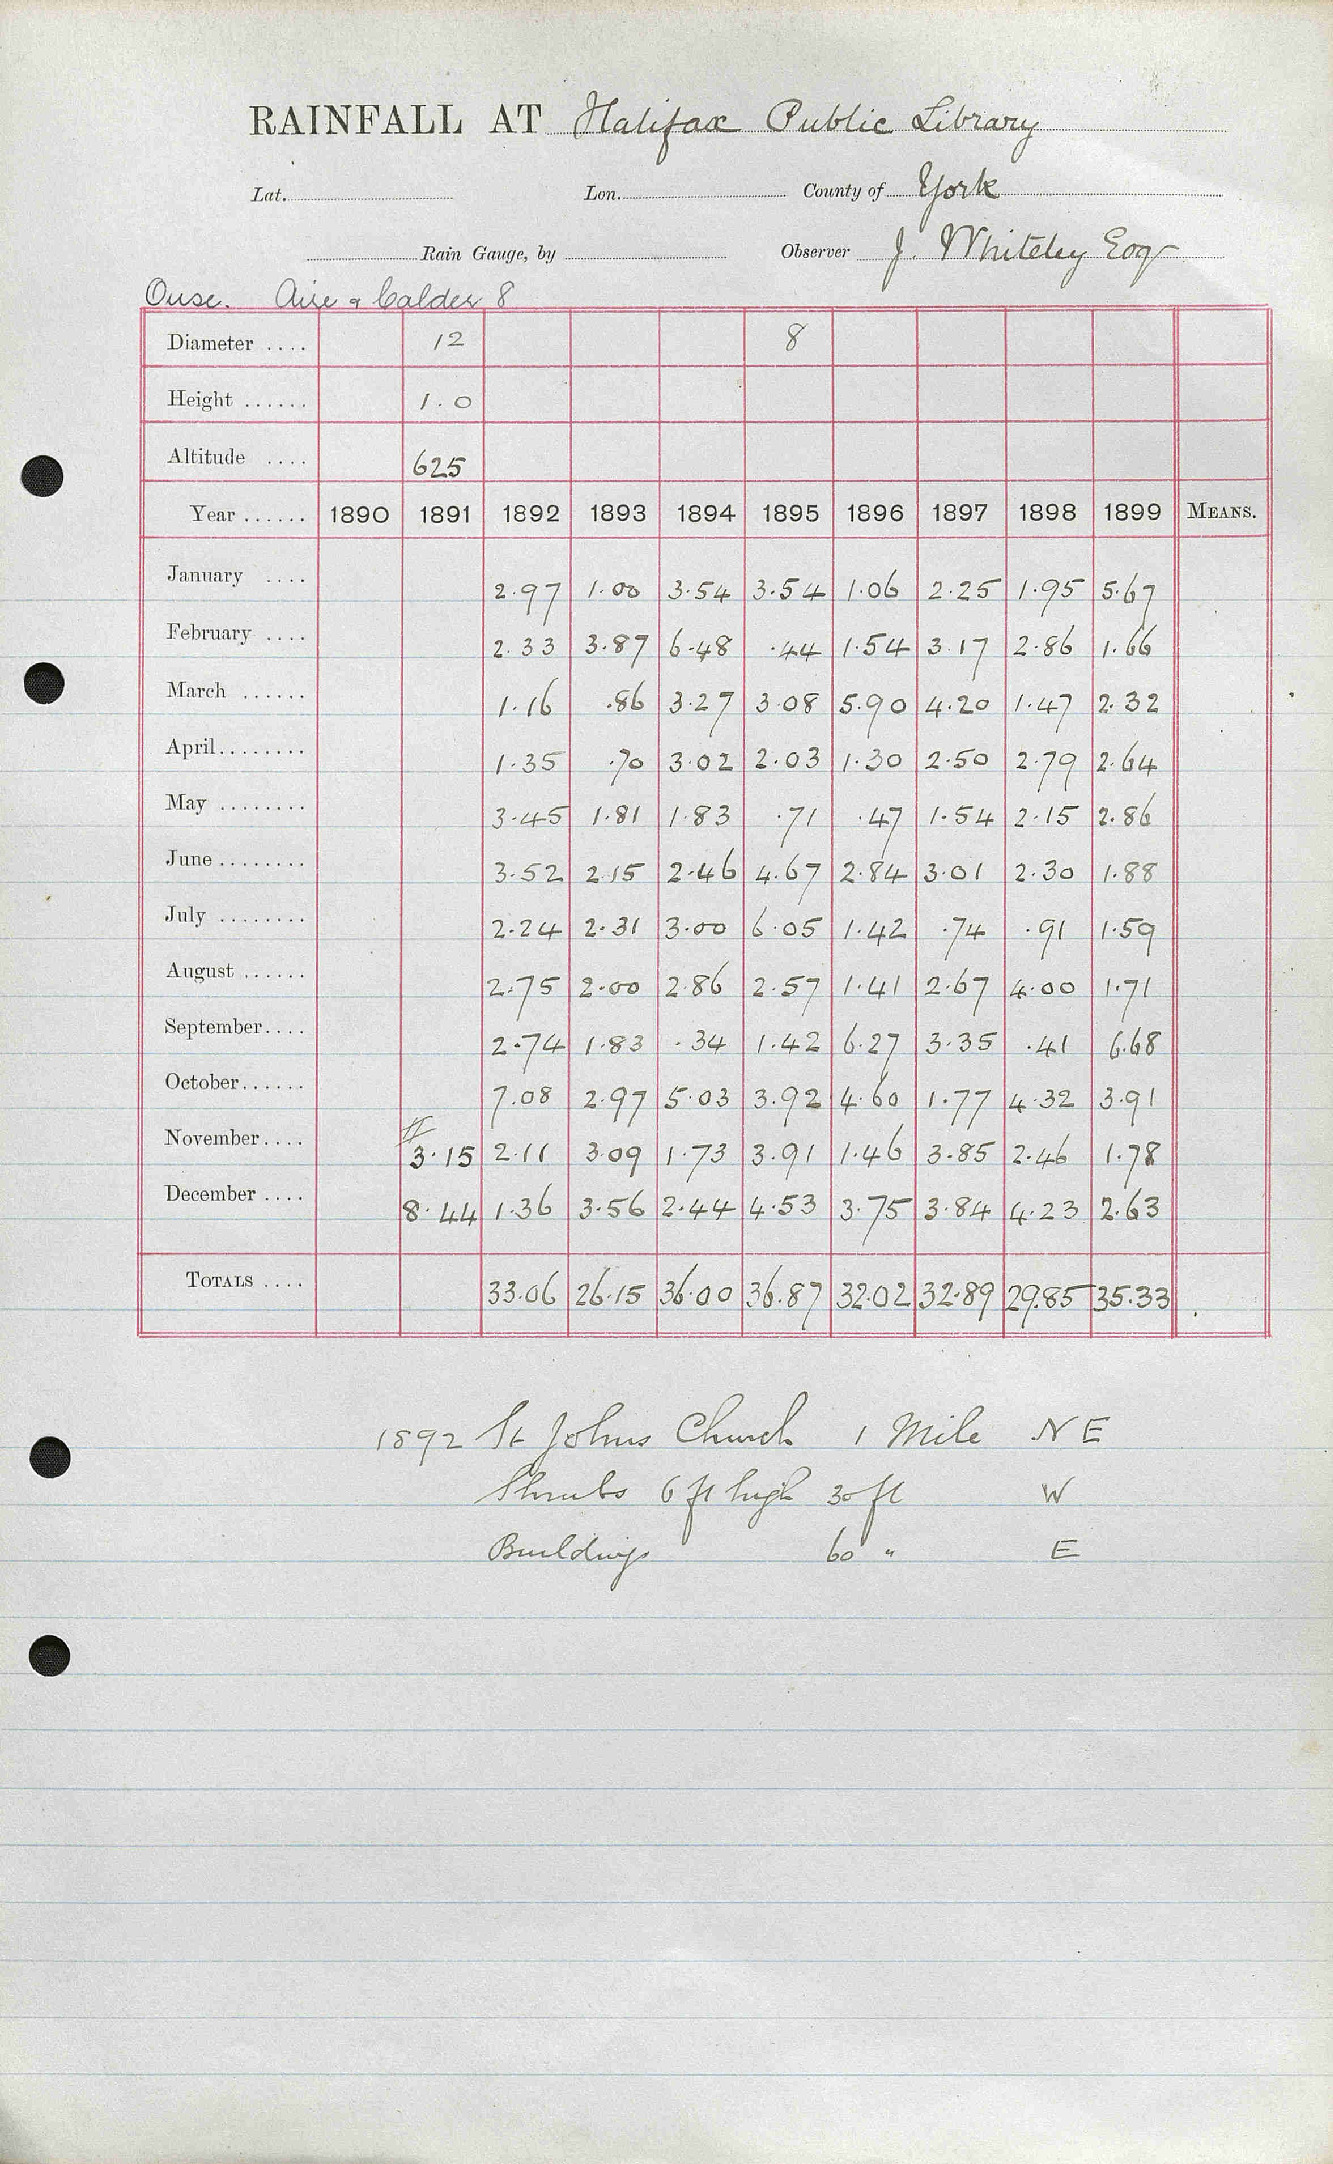 RAINFALL AT Halifax Public Library
Lat. Lon. County of York
Rain Gauge, by Observer J. Whiteley Esqr
Ouse. Aire & Calder 8
Diameter .... 12 8
Height ...... 1.0
Altitude .... 625
Year ...... 1890 1891 1892 1893 1894 1895 1896 1897 1898 1899 MEANS.
January .... 2.97 1.00 3.54 3.54 1.06 2.25 1.95 5.67
February .... 2.33 3.87 6.48 .44 1.54 3.17 2.86 1.66
March ...... 1.16 .86 3.27 3.08 5.90 4.20 1.47 2.32
April........ 1.35 .70 3.02 2.03 1.30 2.50 2.79 2.64
May ........ 3.45 1.81 1.83 .71 .47 1.54 2.15 2.86
June ........ 3.52 2.15 2.46 4.67 2.84 3.01 2.30 1.88
July ........ 2.24 2.31 3.00 6.05 1.42 .74 .91 1.59
August ...... 2.75 2.00 2.86 2.57 1.41 2.67 4.00 1.71
September.... 2.74 1.83 .34 1.42 6.27 3.35 .41 6.68
October...... 7.08 2.97 5.03 3.92 4.60 1.77 4.32 3.91
November.... 3.15 2.11 3.09 1.73 3.91 1.46 3.85 2.46 1.78
December .... 8.44 1.36 3.56 2.44 4.53 3.75 3.84 4.23 2.63
TOTALS .... 33.06 26.15 36.00 36.87 32.02 32.89 29.85 35.33
1892 St Johns Church 1 Mile N E
Shrubs 6 ft high 30 ft W
Buildings 60 " E